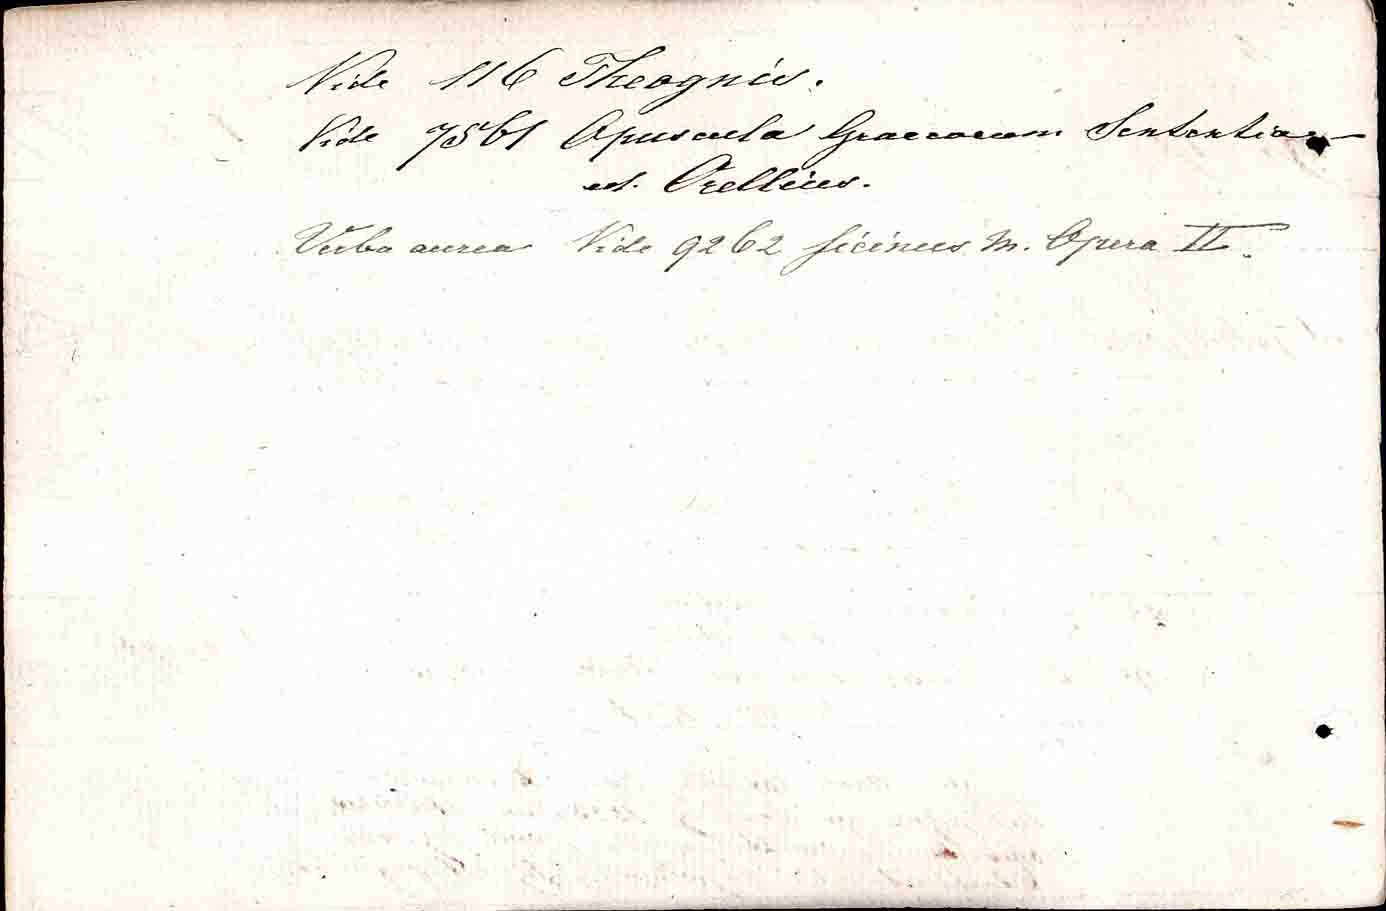 Vide 116 Theognis.
Vide 7561 Opuscula Graecorum Sententiosa
ed. Orellius.
Verba aurea Vide 9262 ficinus M. Opera II.